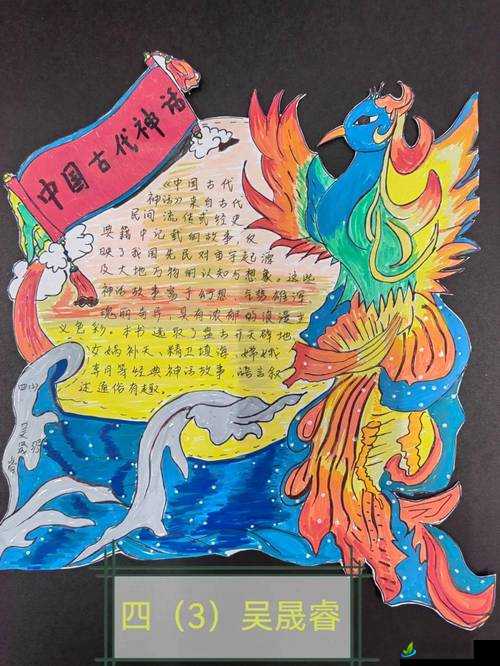 中国古代神话
《中国古代
神话》来自古代
民间流传或经史
典籍中记载的故事,反
映了我国先民对宇宙起源
及大地万物的认知与想象。这些
神话故事富于幻想,气势雄浑
具有浓郁的浪漫主
义色彩。本书选取了盘古开天辟地、
女娲补天、精卫填海、嫦娥
奔月等经典神话故事,语言叙
述通俗有趣。
四(3)
四（3）吴晟睿